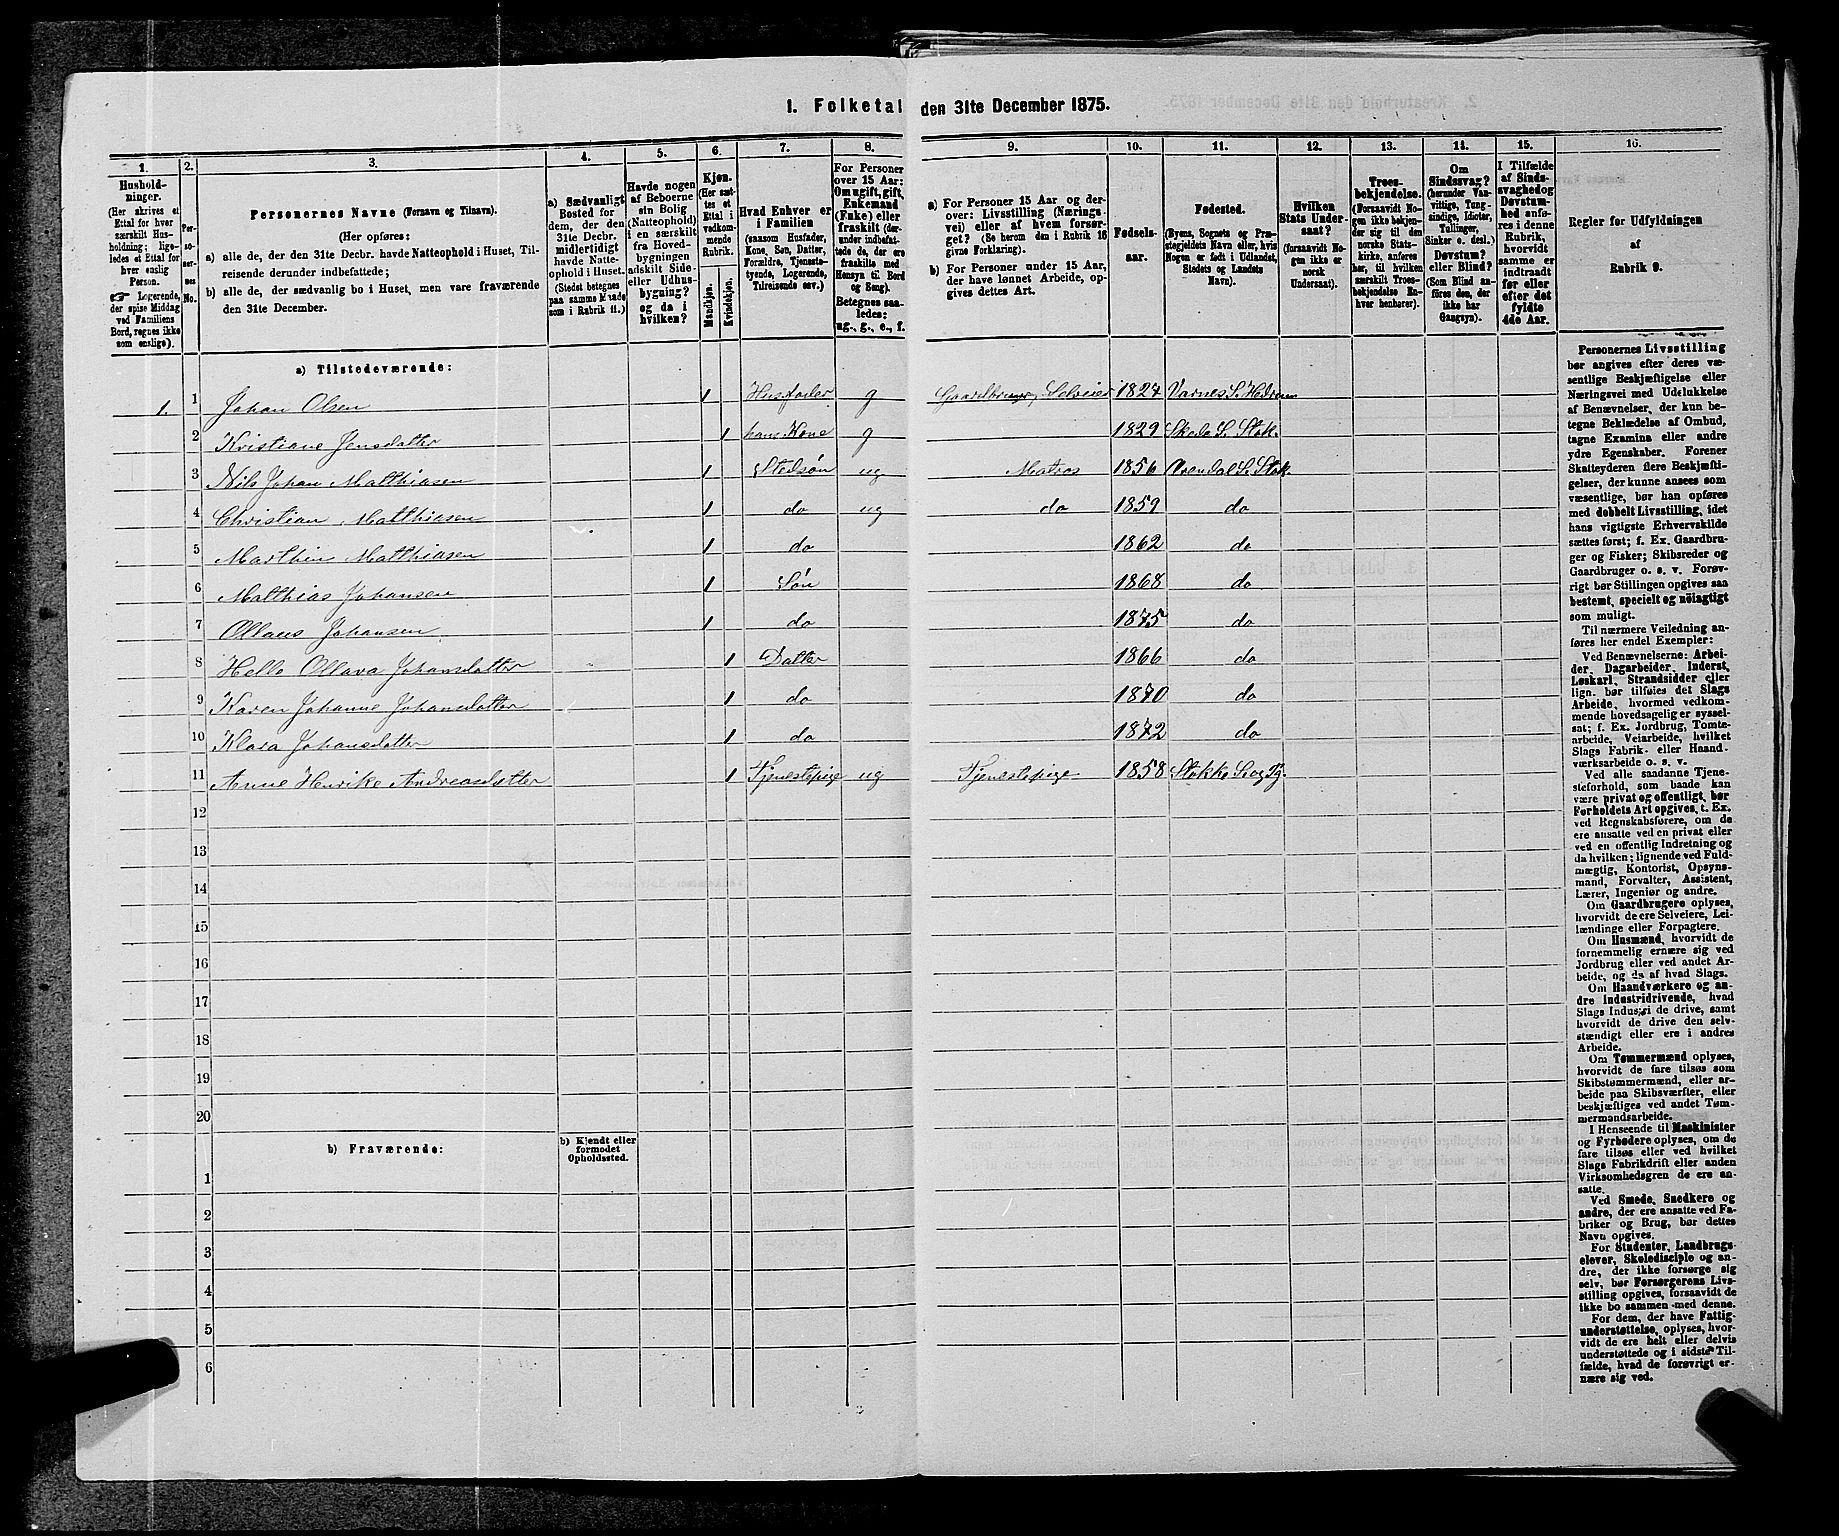 1. Folketal den 31te December 1875.
1. 2. 3. 4. 5. 6. 7. 8. 9. 10. 11. 12. 13. 14. 15. 16.
Hushold-
ninger.
(Her skrives et
Ettal for hver
særskilt Hus-
holdning; lige-
ledes et Ettal for
hver enslig
Person.
☞ Logerende,
der spise Middag
ved Familiens
Bord, regnes ikke
som enslige).
Per-
so-
ner-
nes
No.
Personernes Navne (Fornavn og Tilnavn).
(Her opføres:
a) alle de, der den 31te Decbr. havde Natteophold i Huset, Til-
reisende derunder indbefattede;
b) alle de, der sædvanlig bo i Huset, men vare fraværende
den 31te December.
a) Sædvanligt
Bosted for
dem, der den
31te Decbr.
midlertidigt
havde Natte-
ophold i Huset.
(Stedet betegnes
paa samme Maade
som i Rubrik 11.)
Havde nogen
af Beboerne
sin Bolig
(Natteophold)
i en særskilt
fra Hoved-
bygningen
adskilt Side-
eller Udhus-
bygning?
og da i
hvilken?
Kjøn.
(Her sæt-
tes et
Ettal i
vedkom-
mende
Rubrik.
Mandkjøn.
Kvindekjøn.
Hvad Enhver er
i Familien
(saasom Husfader,
Kone, Søn, Datter,
Forældre, Tjeneste-
tyende, Logerende,
Tilreisende osv.)
For Personer
over 15 Aar:
Om ugift, gift,
Enkemand
(Enke) eller
fraskilt (der-
under indbefat-
tede de, der ere
fraskilte med
Hensyn til Bord
og Seng).
Betegnes saa-
ledes:
ug., g., e., f.
a) For Personer 15 Aar og der-
over: Livsstilling (Nærings-
vei) eller af hvem forsør-
get? (Se herom den i Rubrik 16
givne Forklaring).
b) For Personer under 15 Aar,
der have lønnet Arbeide, op-
gives dettes Art.
Fødsels-
aar.
Fødested.
(Byens, Sognets og Præ-
stegjeldets Navn eller, hvis
Nogen er født i Udlandet,
Stedets og Landets
Navn).
Hvilken
Stats Under-
saat?
(forsaavidt No-
gen ikke er
norsk
Undersaat).
Troes-
bekjendelse.
(Forsaavidt No-
gen ikke bekjen-
der sig til den
norske Stats-
kirke, anføres
her, til hvilken
særskilt Troes-
bekjendelse En-
hver henhører).
Om
Sindssvag?
(herunder Van-
vittige, Tung-
sindige, Idioter,
Tullinger,
Sinker o. desl.)
Døvstum?
eller Blind?
(Som Blind an-
føres den, der
ikke har
Gangsyn).
I Tilfælde
af Sinds-
svaghed og
Døvstum-
hed anfø-
res i denne
Rubrik,
hvorvidt
samme er
indtraadt
før eller
efter det
fyldte
4de Aar.
Regler for Udfyldningen
af
Rubrik 9.
a) Tilstedeværende:
1. 1 Johan Olsen 1 Husfader g Gaardbruger, Selveier 1827 Varnes S. Hedrum
2 Kristiane Jensdatter 1 hans Kone g 1829 Skeda S. Stok.
3 Nils Johan Matthiasen 1 Stedsøn ug Matros 1856 Arendal S. Stok.
4 Christian Matthiasen 1 do ug do 1859 do
5 Marthin Matthiasen 1 do 1862 do
6 Matthias Johansen 1 Søn 1868 do
7 Ollaus Johansen 1 do 1875 do
8 Helle Ollava Johansdatter 1 Datter 1866 do
9 Karen Johanne Johansdatter 1 do 1870 do
10 Klara Johansdatter 1 do 1872 do
11 Anne Henrike Andreasdatter 1 Tjenestepige ug Tjenestepige 1858 Stokke S. og Pg.
12
13
14
15
16
17
18
19
20
b) Fraværende:
b) Kjendt eller
formodet
Opholdssted.
1
2
3
4
5
6
Personernes Livsstilling
bør angives efter deres væ-
sentlige Beskjæftigelse eller
Næringsvei med Udelukkelse
af Benævnelser, der kun be-
tegne Beklædelse af Ombud,
tagne Examina eller andre
ydre Egenskaber. Forener
Skatteyderen flere Beskjæfti-
gelser, der kunne ansees som
væsentlige, bør han opføres
med dobbelt Livsstilling, idet
hans vigtigste Erhvervskilde
sættes først; f. Ex. Gaardbru-
ger og Fisker; Skibsreder og
Gaardbruger o. s. v. Forøv-
rigt bør Stillingen opgives saa
bestemt, specielt og nöiagtigt
som muligt.
Til nærmere Veiledning an-
føres her endel Exempler:
Ved Benævnelserne: Arbei-
der, Dagarbeider, Inderst,
Løskarl, Strandsidder eller
lign. bør tilføies det Slags
Arbeide, hvormed vedkom-
mende hovedsagelig er syssel-
sat; f. Ex. Jordbrug, Tomte-
arbeide, Veiarbeide, hvilket
Slags Fabrik- eller Haand-
værksarbeide o. s. v.
Ved alle saadanne Tjene-
steforhold, som baade kan
være privat og offentligt, bør
Forholdets Art opgives, t. Ex.
ved Regnskabsførere, om de
ere ansatte ved en privat eller
ved en offentlig Indretning og
da hvilken; lignende ved Fuld-
mægtig, Kontorist, Opsyns-
mand, Forvalter, Assistent,
Lærer, Ingeniør og andre.
Om Gaardbrugere oplyses,
hvorvidt de ere Selveiere, Lei-
lændinge eller Forpagtere.
Om Husmænd, hvorvidt de
fornemmelig ernære sig ved
Jordbrug eller ved andet Ar-
beide, og da af hvad Slags.
Om Haandværkere og an-
dre Industridrivende, hvad
Slags Industri de drive, samt
hvorvidt de drive den selv-
stændigt eller ere i andres
Arbeide.
Om Tømmermænd oplyses,
hvorvidt de fare tilsøs som
Skibstømmermænd, eller ar-
beide paa Skibsværfter, eller
beskjæftiges ved andet Tøm-
mermandsarbeide.
I Henseende til Maskinister
og Fyrbødere oplyses, om de
fare tilsøs eller ved hvilket
Slags Fabrikdrift eller anden
Virksomhedsgren de ere an-
satte.
Ved Smede, Snedkere og
andre, der ere ansatte ved Fa-
briker og Brug, bør dettes
Navn opgives.
For Studenter, Landbrugs-
elever, Skoledisciple og an-
dre, der ikke forsørge sig
selv, bør Forsørgerens Livs-
stilling opgives, forsaavidt de
ikke bo sammen med denne.
For dem, der have Fattig-
understøttelse, oplyses, hvor-
vidt de ere helt eller delvis
understøttede og i sidste Til-
fælde, hvad de forøvrigt er-
nære sig ved.